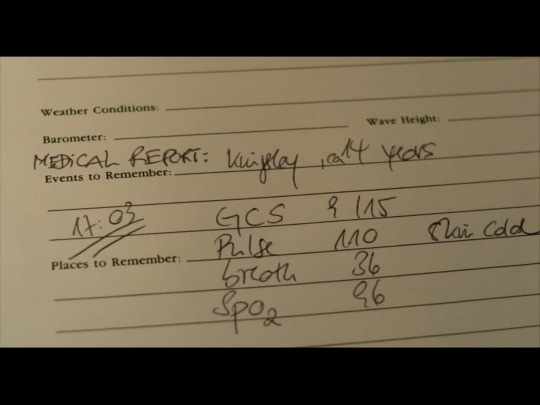 Weather Conditions:
Barometer: Wave Height:
MEDICAL REPORT: Kingsley, ca 14 years
Events to Remember:
17:03 GCS 9/15
Pulse 110 Skin cold
Places to Remember:
breath 36
SpO2 96